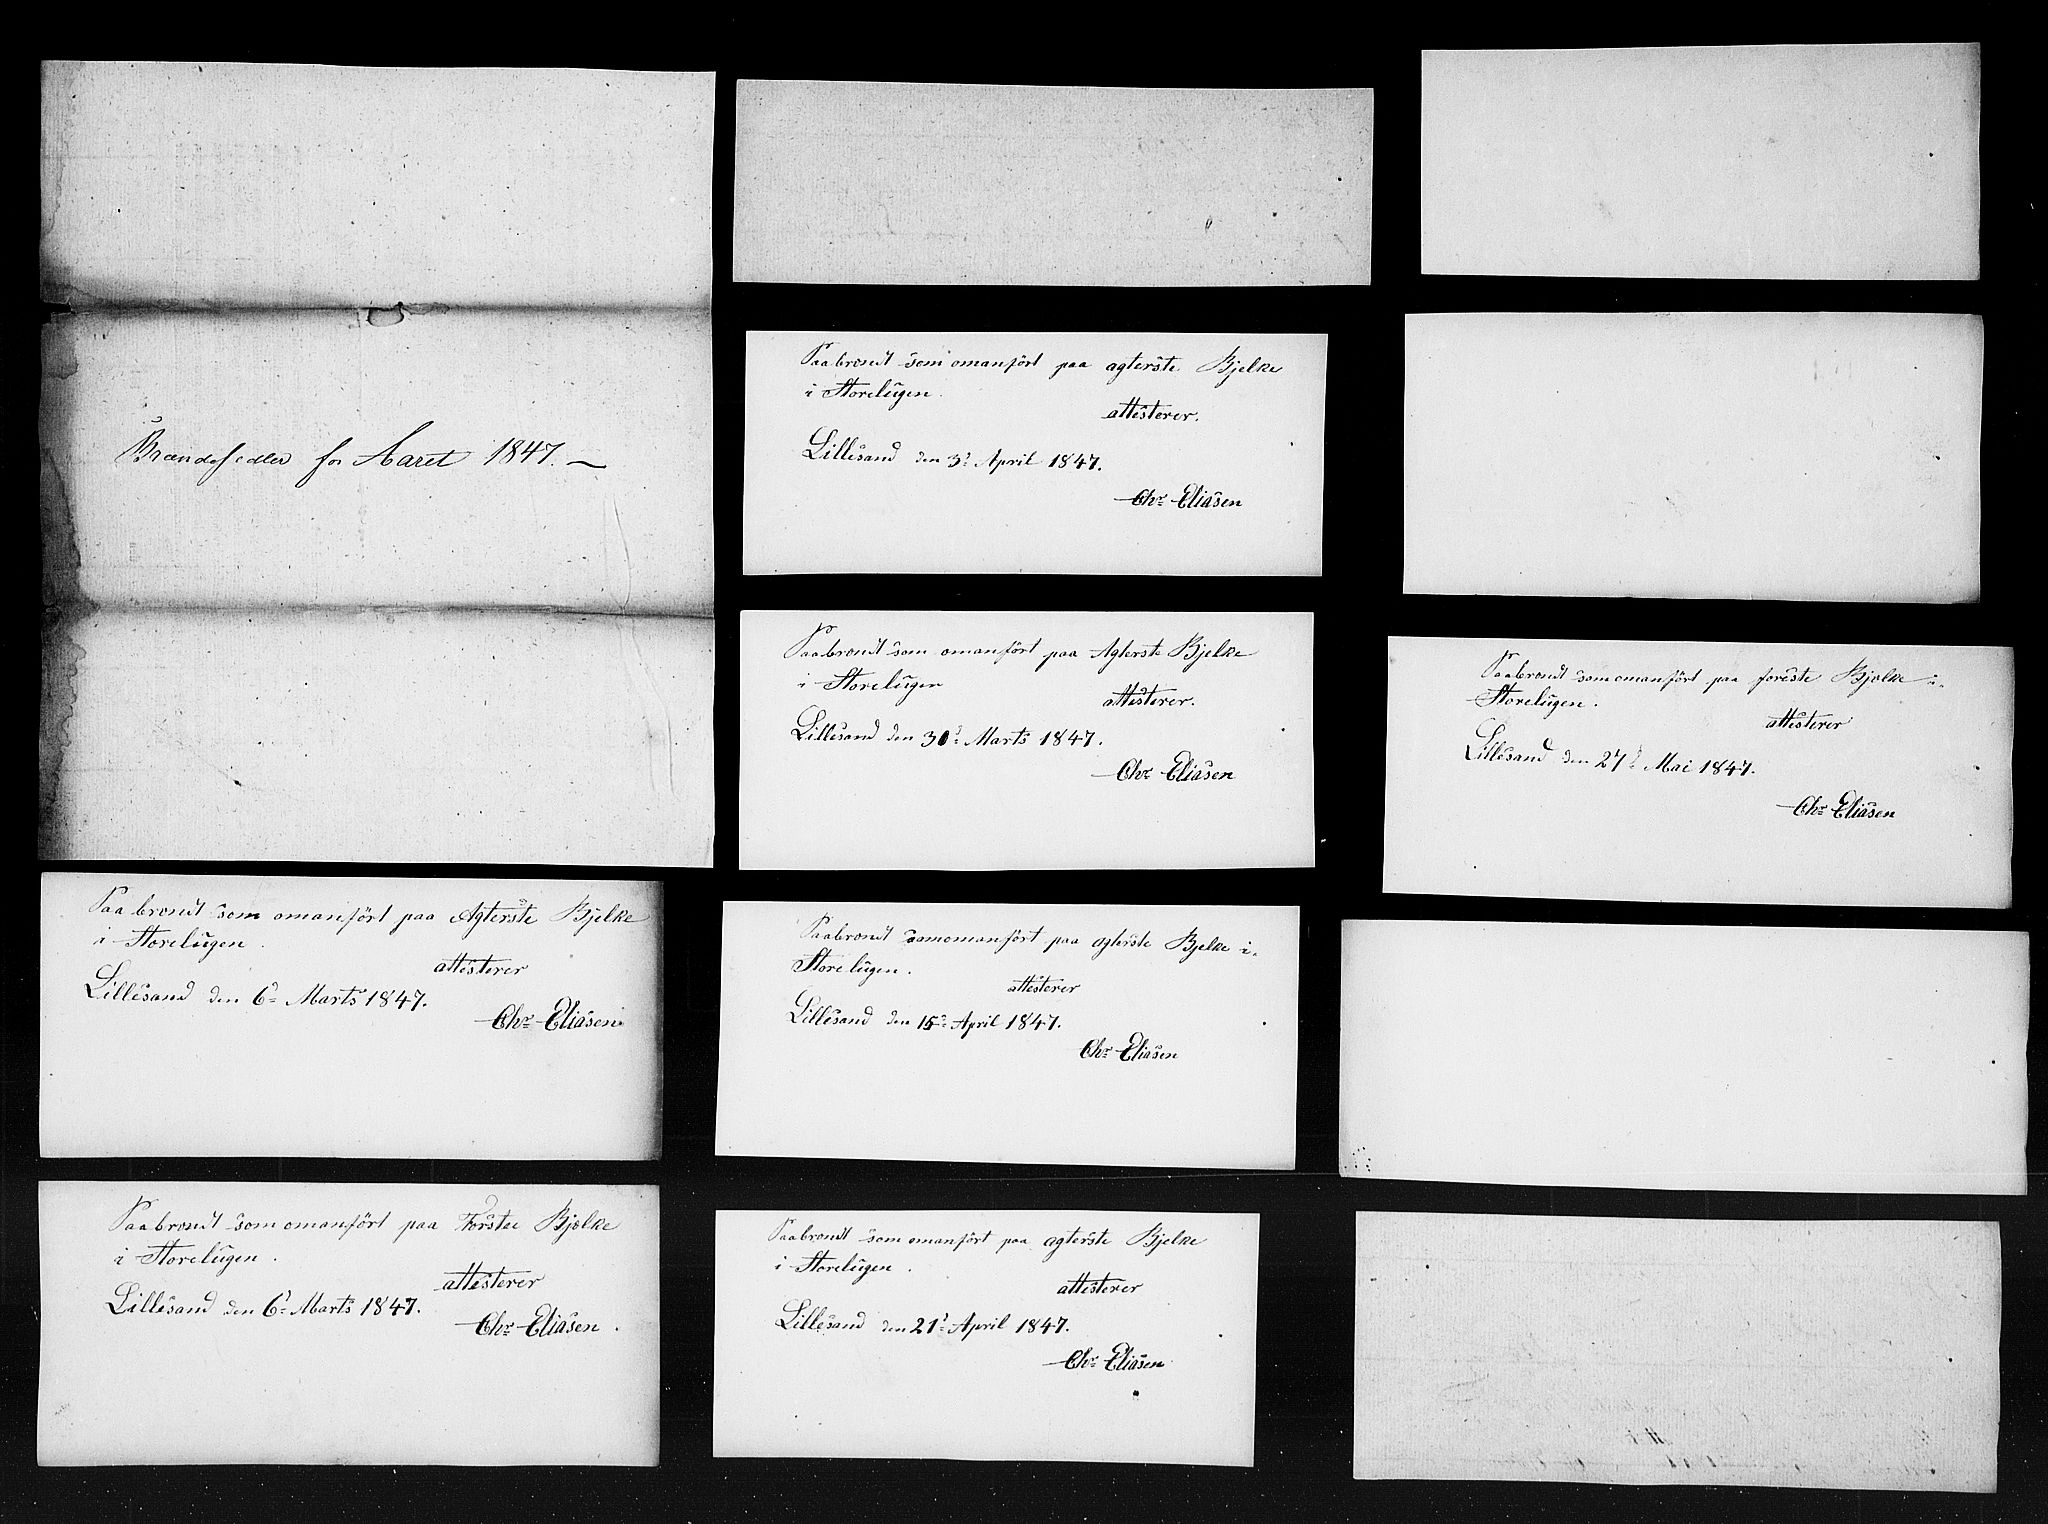 Brændesedler for Aaret 1847. —
Paabrændt som omanført paa Agterste Bjelke
i Storelugen.
attesterer
Lillesand den 6d Marts 1847.
Chr Eliasen
Paabrændt som omanført paa Forster Bjelke
i Storelugen.
attesterer
Lillesand den 6d Marts 1847.
Chr Eliasen.
Paabrændt som omanført paa agterste Bjelke
i Storelugen.
attesterer.
Lillesand den 3d April 1847.
Chr Eliasen
Paabrændt som omanført paa Agterste Bjelke
i Storelugen
attesterer.
Lillesand den 30d Marts 1847.
Chr Eliasen
Paabrændt somomanført paa agterste Bjelke i
Storelugen.
attesterer
Lillesand den 15d April 1847.
Chr Eliasen
Paabrændt som omanført paa agterste Bjelke
i Storelugen.
attesterer
Lillesand den 21d April 1847.
Chr Eliasen
Paabrændt som omanført paa foreste Bjelke i
Storelugen.
attesterer
Lillesand den 27d Mai 1847.
Chr Eliasen